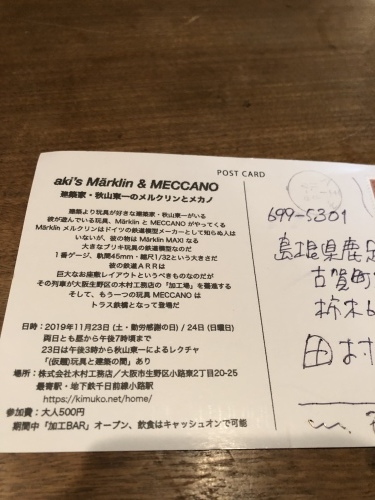 aki's Märklin & MECCANO
建築家・秋山東一のメルクリンとメカノ
建築より玩具が好きな建築家・秋山東一がいる
彼が遊んでいる玩具、Märklin と MECCANO がやってくる
Märklin メルクリンはドイツの鉄道模型メーカーとして知らぬ人は
いないが、彼の物は Märklin MAXI なる
大きなブリキ玩具の鉄道模型なのだ
1番ゲージ、軌間45mm・縮尺1/32という大きさだ
彼の鉄道ＡＲＲは
巨大なお座敷レイアウトというべきものなのだが
その列車が大阪生野区の木村工務店の「加工場」を驀進する
そして、もう一つの玩具 MECCANO は
トラス鉄橋となって登場だ
日時：2019年11月23日 (土・勤労感謝の日) / 24日 (日曜日)
両日とも昼から午後7時頃まで
23日は午後3時から秋山東一によるレクチャ
「(仮題)玩具と建築の間」あり
場所：株式会社木村工務店／大阪市生野区小路東2丁目20-25
最寄駅・地下鉄千日前線小路駅
https://kimuko.net/home/
参加費：大人500円
期間中「加工BAR」オープン、飲食はキャッシュオンで可能
POST CARD
699-5301
島根県鹿足
古賀町
柿木
田村